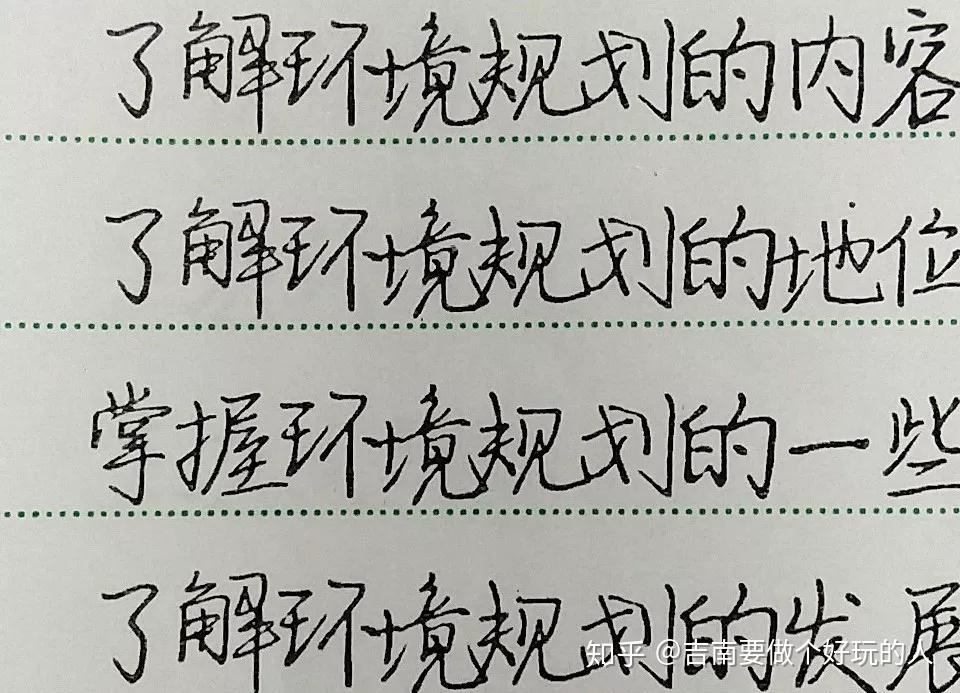 了解环境规划的内容
了解环境规划的地位
掌握环境规划的一些
了解环境规划的发展
知乎 @吉南要做个好玩的人